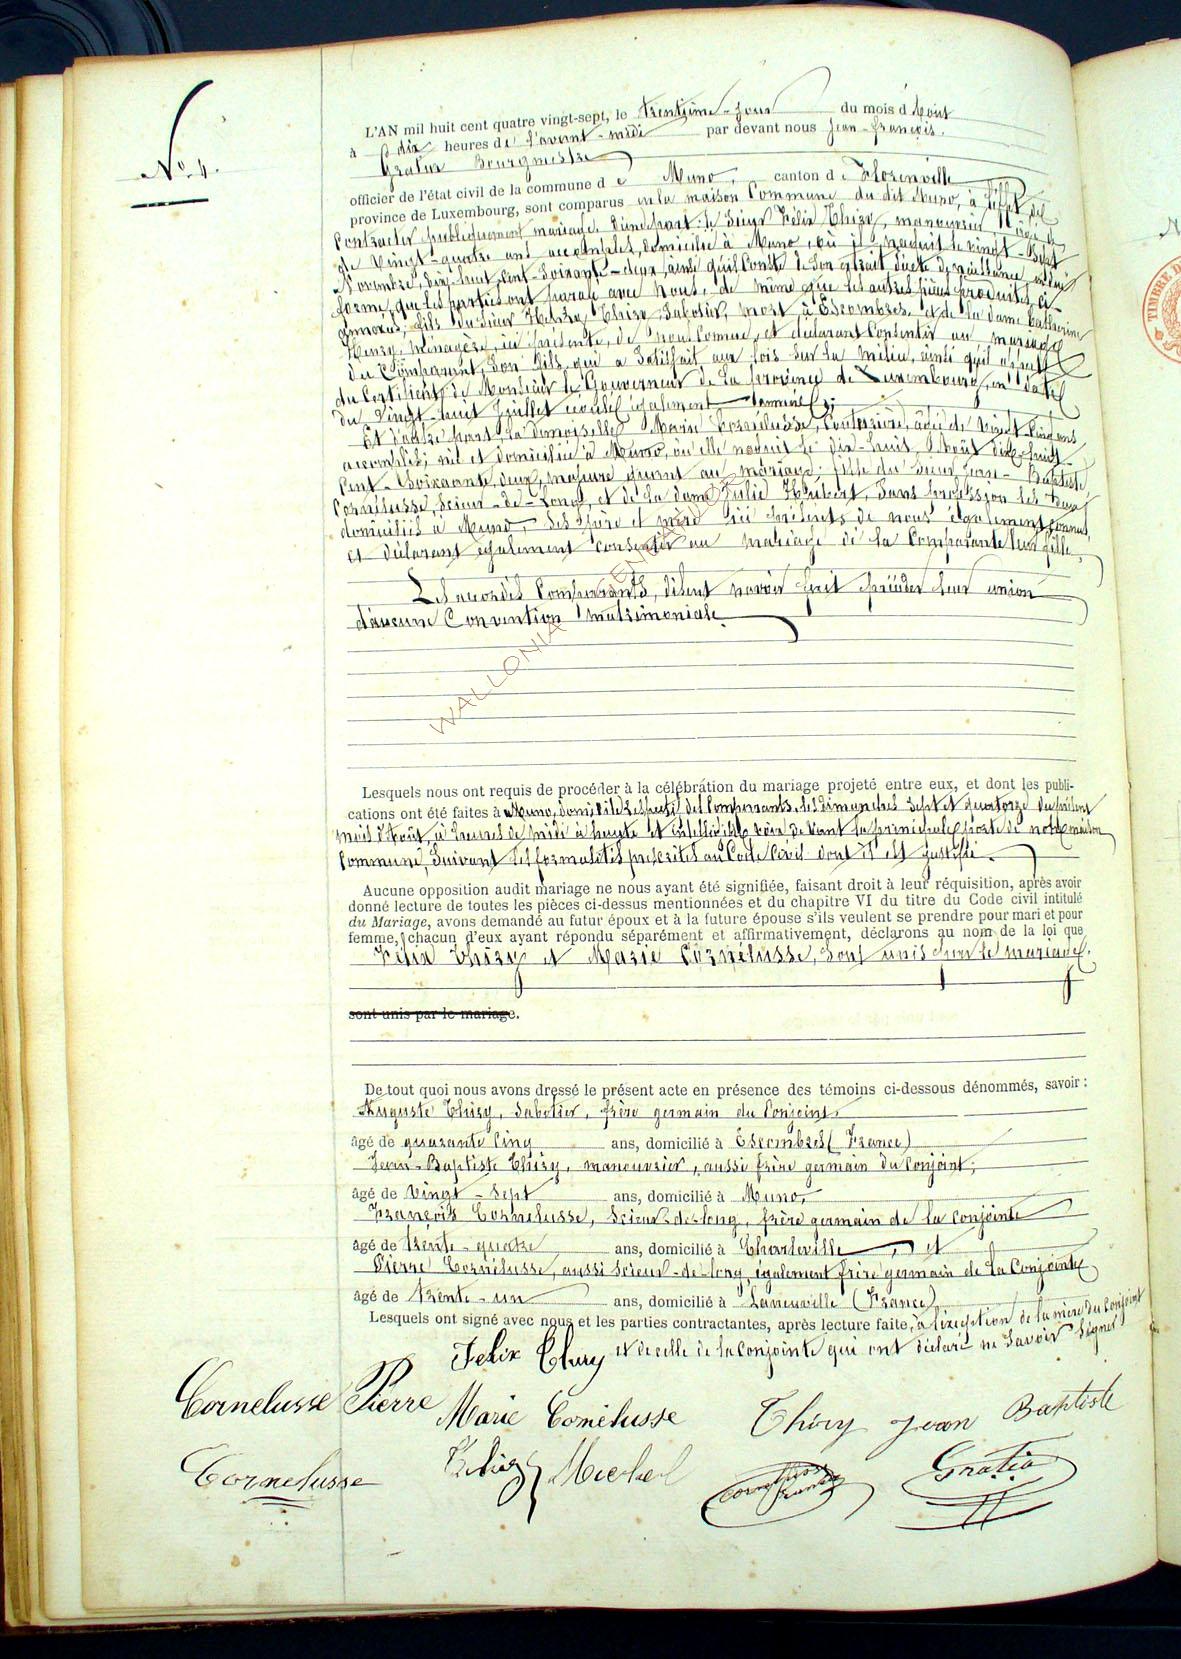 No. 4.
L'AN mil huit cent quatre vingt-sept, le trentième jour du mois d'Août
à dix heures de l'avant-midi par devant nous Jean-François
Bourgmestre
officier de l'état civil de la commune de Muno, canton de Florenville
province de Luxembourg, sont comparus en la maison Commune du dit Muno, à l'effet de
Contracter publiquement mariage, d'une part: le Sieur Félix Thiry, manouvrier, âgé
de vingt-quatre ans accomplis, domicilié à Muno, où il naquit le vingt-
Novembre, dix-huit-Cent-Soixante-deux, ainsi qu'il Conste de son extrait d'acte de naissance, en due
forme, que les parties ont parafé avec nous, de même que les autres pièces produites, ci
annexées, fils du Sieur Thiry, Sabotier, mort à Escombres, et de la dame Catherine
Henry, ménagère, ici présente, de nous Connue, et déclarant Consentir au mariage
du Comparant, Son fils, qui a Satisfait aux lois Sur la milice, ainsi qu'il appert
du Certificat de Monsieur le Gouverneur de la province de Luxembourg, en date
du vingt-huit Juillet écoulé également annexé;
Et d'autre part, la demoiselle Marie Cornélusse, Couturière, âgée de vingt-Cinq ans
accomplis, née et domiciliée à Muno, où elle naquit le dix-huit Août dix-huit-
Cent-Soixante-deux, majeure quant au mariage, fille du Sieur Jean-Baptiste
Cornélusse, Scieur-de-Long, et de la dame Julie Hubert, Sans profession les deux
domiciliés à Muno, Ses père et mère ici présents de nous également connus,
et déclarant également consentir au mariage de la Comparante leur fille.
Les accordés Comparants, disent n'avoir fait précéder leur union
d'aucune Convention matrimoniale.
WALLONIA
Lesquels nous ont requis de procéder à la célébration du mariage projeté entre eux, et dont les publi-
cations ont été faites à Muno, domicile respectif des Comparants, les dimanches Sept et quatorze du présent
mois d'Août, à heures de midi à haute et intelligible voix devant la principale porte de notre maison
Commune, Suivant les formalités prescrites au Code Civil dont il est justifié.
Aucune opposition audit mariage ne nous ayant été signifiée, faisant droit à leur réquisition, après avoir
donné lecture de toutes les pièces ci-dessus mentionnées et du chapitre VI du titre du Code civil intitulé
du Mariage, avons demandé au futur époux et à la future épouse s'ils veulent se prendre pour mari et pour
femme, chacun d'eux ayant répondu séparément et affirmativement, déclarons au nom de la loi que
Félix Thiry et Marie Cornélusse, Sont unis par le mariage.
sont unis par le mariage.
De tout quoi nous avons dressé le présent acte en présence des témoins ci-dessous dénommés, savoir:
Auguste Thiry, Sabotier, frère germain du Conjoint,
âgé de quarante Cinq ans, domicilié à Escombres (France)
Jean-Baptiste Thiry, manouvrier, aussi frère germain du Conjoint;
âgé de vingt-sept ans, domicilié à Muno,
François Cornelusse, Scieur-de-long, frère germain de la conjointe
âgé de trente-quatre ans, domicilié à Charleville, et
Pierre Cornélusse, aussi Scieur-de-long, également frère germain de la Conjointe
âgé de trente-un ans, domicilié à Laneuville (France)
Lesquels ont signé avec nous et les parties contractantes, après lecture faite, à l'exception de la mère du Conjoint
et de celle de la Conjointe qui ont déclaré ne Savoir Signer
Felix Thiry
Cornelusse Pierre Marie Cornélusse Thiry Jean Baptiste
Cornelusse
TIMBRE D